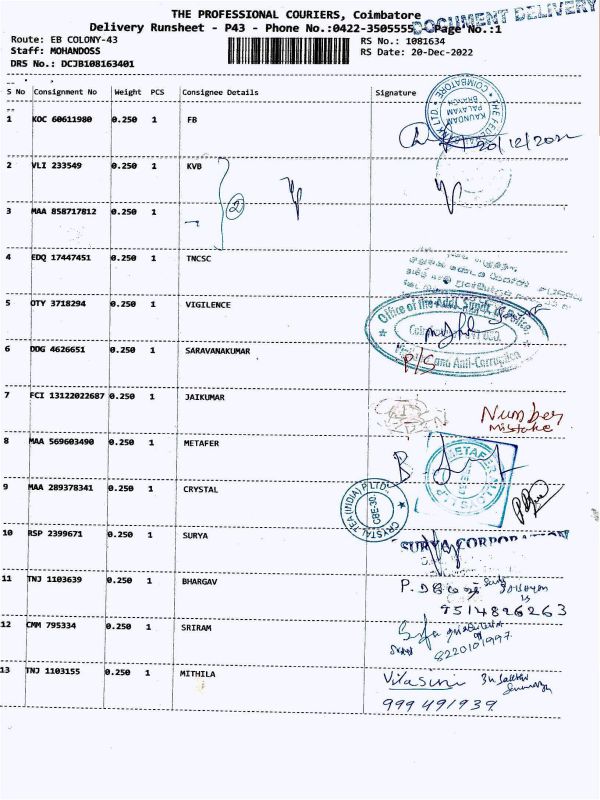 THE PROFESSIONAL COURIERS, Coimbatore
DOCUMENT DELIVERY
Delivery Runsheet - P43 - Phone No.:0422-3505555 Page No.:1
Route: EB COLONY-43
RS No.: 1081634
Staff: MOHANDOSS
RS Date: 20-Dec-2022
DRS No.: DCJB108163401
S No Consignment No Weight PCS Consignee Details Signature
1 KOC 60611980 0.250 1 FB
THE FEDERAL LTD. COIMBATORE
KAUNDAM PALAYAM BRANCH
20/12/2022
2 VLI 233549 0.250 1 KVB
2
3 MAA 858717812 0.250 1
4 EDQ 17447451 0.250 1 TNCSC
5 OTY 3718294 0.250 1 VIGILENCE
Office of the Addl. Supdt. of Police
and Anti-Corruption
6 DDG 4626651 0.250 1 SARAVANAKUMAR
P/S
7 FCI 13122022687 0.250 1 JAIKUMAR
Number
Mistake
8 MAA 569603490 0.250 1 METAFER
METAFER
9 MAA 289378341 0.250 1 CRYSTAL
CRYSTAL TEA (INDIA) P LTD
CBE-30.
10 RSP 2399671 0.250 1 SURYA
SURYA CORPORATION
11 TNJ 1103639 0.250 1 BHARGAV
9514826263
12 CMM 795334 0.250 1 SRIRAM
8220101997
13 TNJ 1103155 0.250 1 MITHILA
Vilasini
999491939